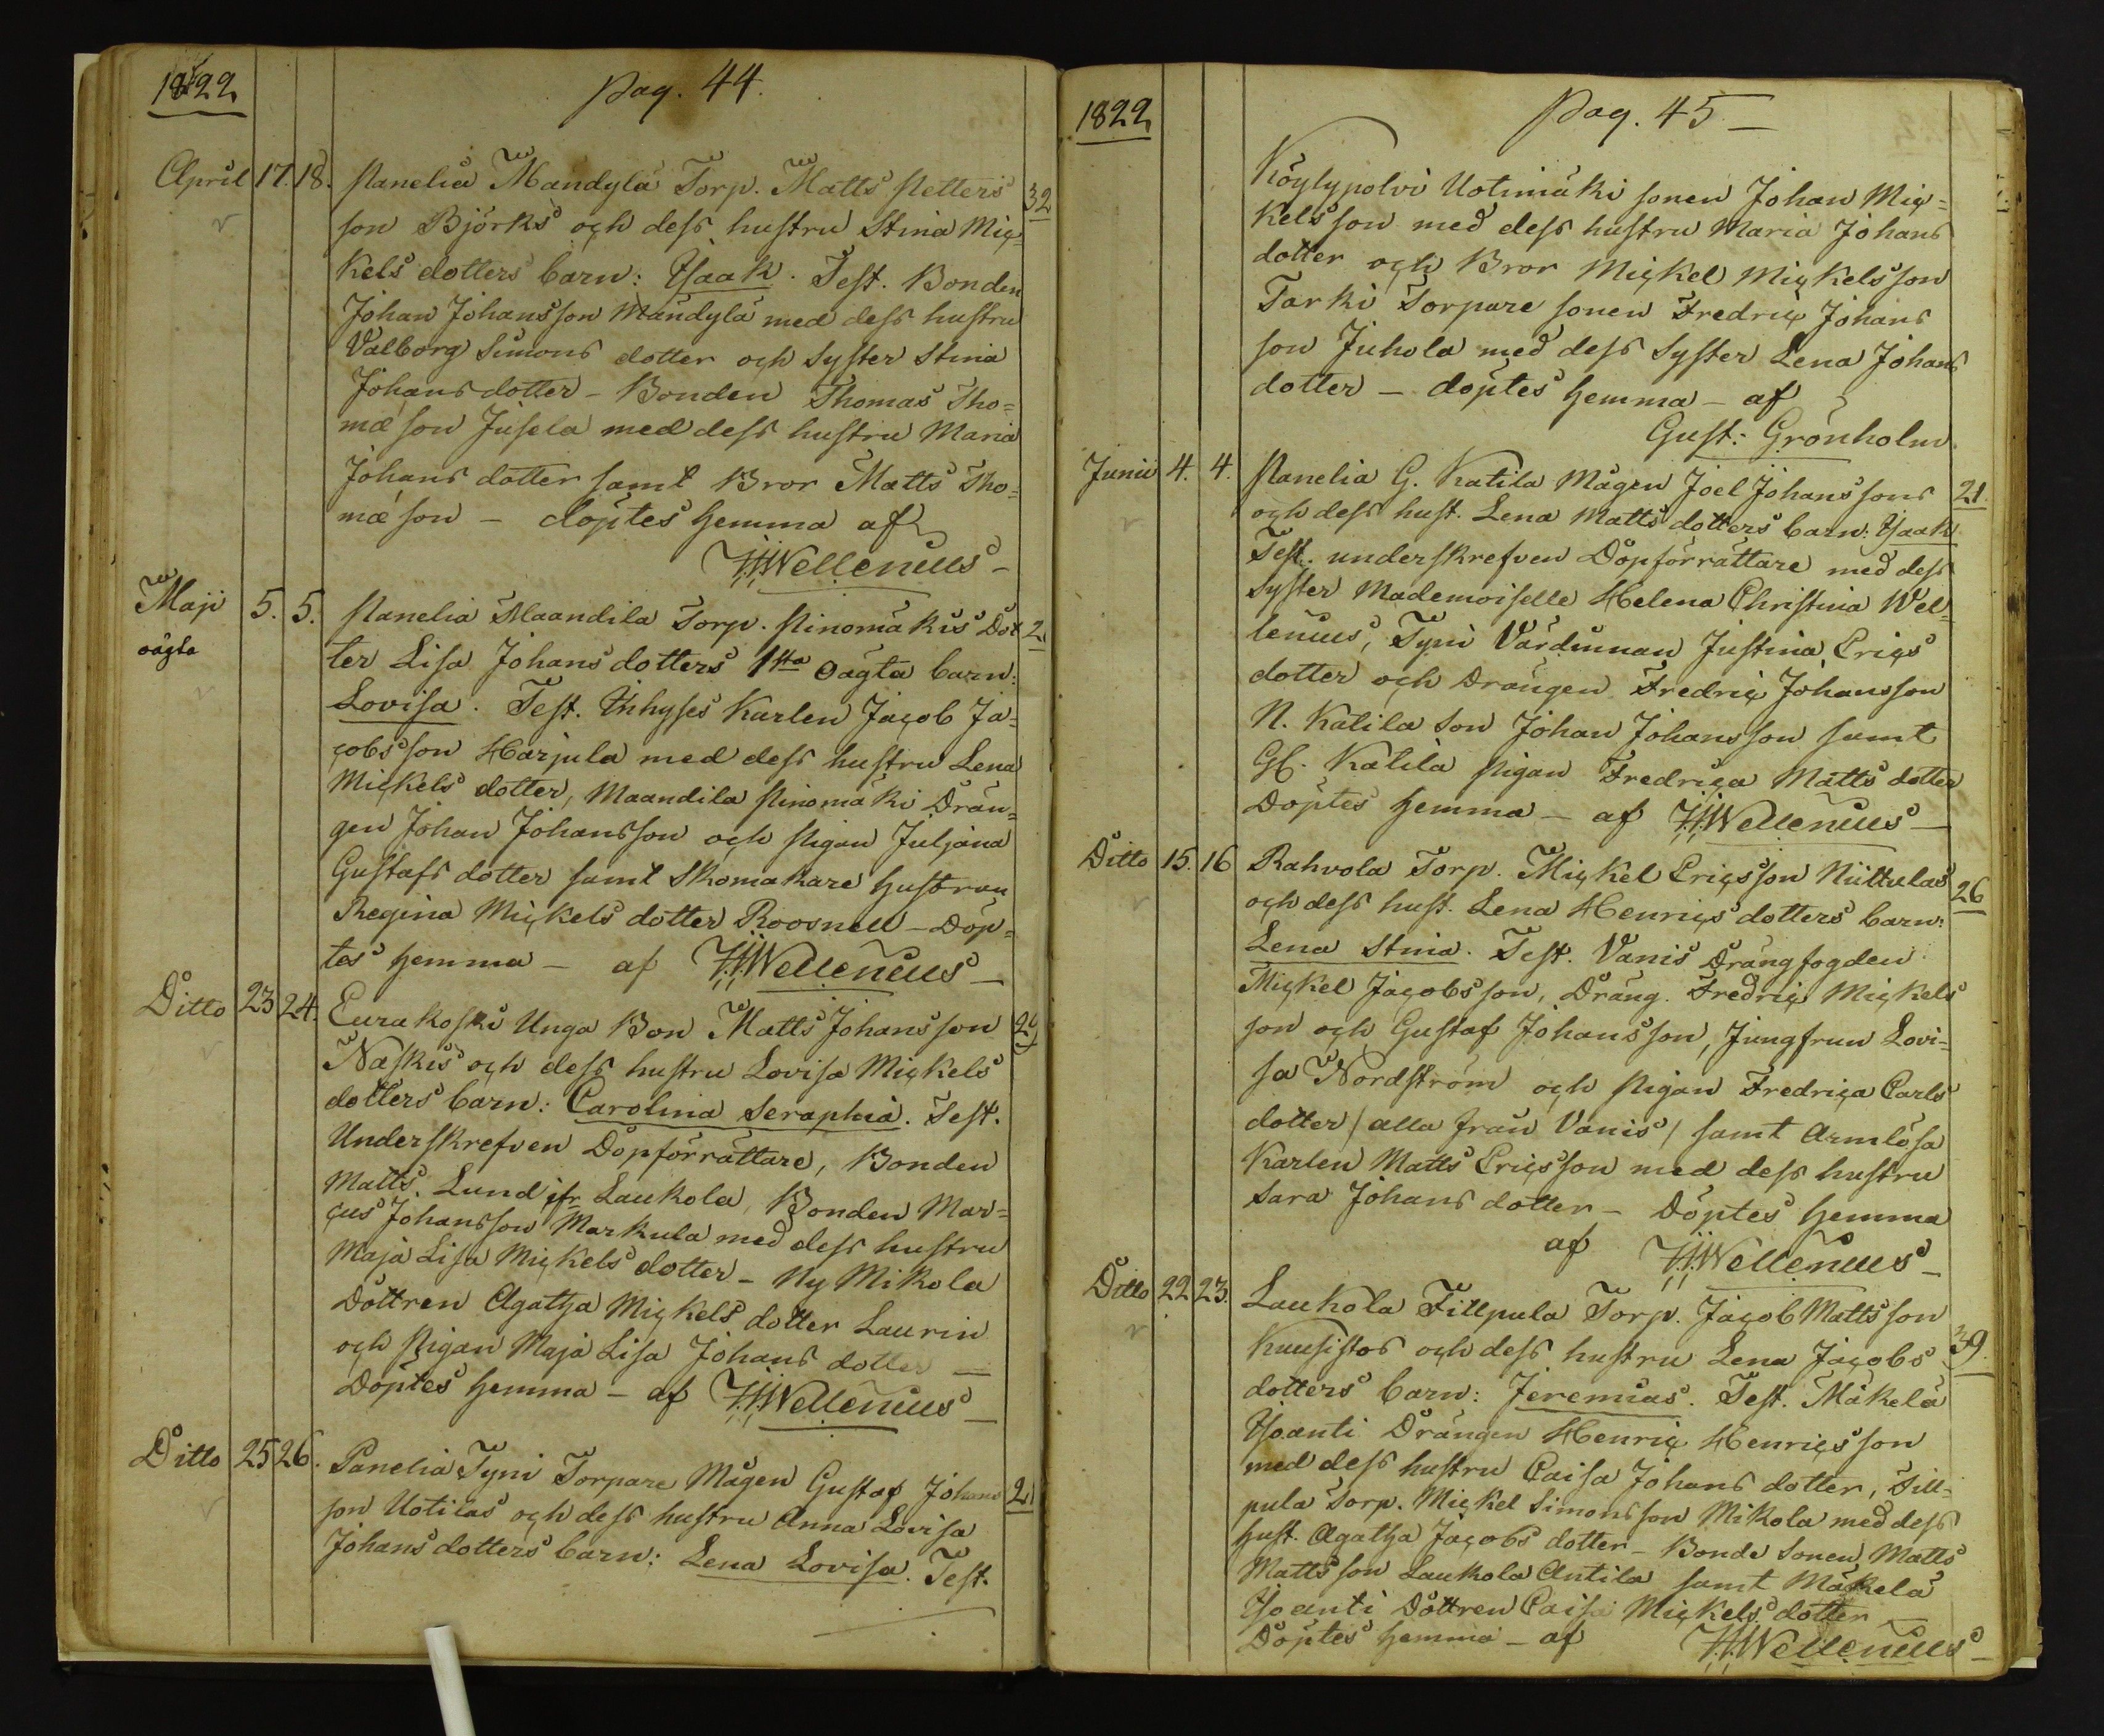 1822
pag. 44.
April 17. 18. Panelia Mandyla Torp. Matts Petters 32
son Björks och dess hustru Stina Mic-
kels dotters barn: Isaak. Test. Bonden
Johan Johansson Mandyla med dess hustru
Valborg Simons dotter och Syster Stina
Johansdotter - Bonden Thomas Tho=
mæ son Jusela med dess hustru Maria
Johans dotter samt Bror Matts Tho=
mæ son - döptes hemma af
Wellenius -
Maji 5. 5. Panelia Maandila Torp. Pinomäkis Dot 2.
oägta
ter Lisa Johans dotters 1sta oägta barn:
Lovisa. Test. Inhyses Karlen Jacob Ja=
cobsson Harjula med dess hustru Lena
Mickels dotter, Maandila Pinomäki Drän=
gen Johan Johansson och Pigan Juljana
Gustafs dotter samt Skomakare hustrun
Regina Mickels dotter Roosnell - Döp=
tes hemma - af Wellenius -
Ditto 23 24. Eurakoski Unga Bon Matts Johansson 29
Naskis och dess hustru Lovisa Mickels
dotters barn: Carolina Seraphia. Test.
Underskrefven Döpförrättare, Bonden
Matts Lund ifr Laukola, Bonden Mar=
cus Johansson Markula med dess hustru
Maja Lisa Mickels dotter - Ny Mikola
Dottren Agatha Mickels dotter Laurin
och Pigan Maja Lisa Johans dotter -
Döptes hemma - af Wellenius -
Ditto 25 26. Panelia Tyni Torpare Mågen Gustaf Johans 21
son Uotilas och dess hustru Anna Lovisa
Johans dotters barn: Lena Lovisa. Test.
1822
pag. 45 -
Köylypolvi Uotimäki sonen Johan Mic=
kelsson med dess hustru Maria Johans
dotter och Bror Mickel Mickelsson
Tarki Torpare sonen Fredric Johans
son Juhola med dess Syster Lena Johans
dotter - döptes hemma - af
Gust: Grönholm.
Junii 4. 4. Panelia G. Katila Mågen Joel Johanssons 21.
och dess hust. Lena Matts dotters barn: Isaak
Test. underskrefven Döpförrättare med dess
Syster Mademoiselle Helena Christina Wel-
lenius, Tyni Värdinnan Justina Erics
dotter och Drängen Fredric Johansson
N. Katila Son Johan Johansson samt
G. Katila Pigan Fredrica Matts dotter
Döptes hemma - af Wellenius -
Ditto 15. 16 Rahvola Torp. Mickel Ericsson Niittulas 26
och dess hust. Lena Henrics dotters barn:
Lena Stina. Test. Vanis Drängfogden
Mickel Jacobsson, Dräng. Fredric Mickels
son och Gustaf Johansson, Jungfrun Lovi=
sa Nordström och Pigan Fredrica Carls
dotter / alla från Vanis / samt Armlösa
Karlen Matts Ericsson med dess hustru
Sara Johans dotter - Döptes hemma
af Wellenius -
Ditto 22 23. Laukola Fillpula Torp. Jacob Mattsson 39.
Kuusistos och dess hustru Lena Jacobs
dotters barn: Jeremias. Test. Mäkelä
Isoanti Drängen Henric Henricsson
med dess hustru Caisa Johans dotter, Fill=
pula Torp. Mickel Simonsson Mikola med dess
hust. Agatha Jacobs dotter - Bonde Sonen Matts
Mattsson Laukola Antila samt Mäkelä
Isoanti Dottren Caisa Mickels dotter
Döptes hemma - af Wellenius -